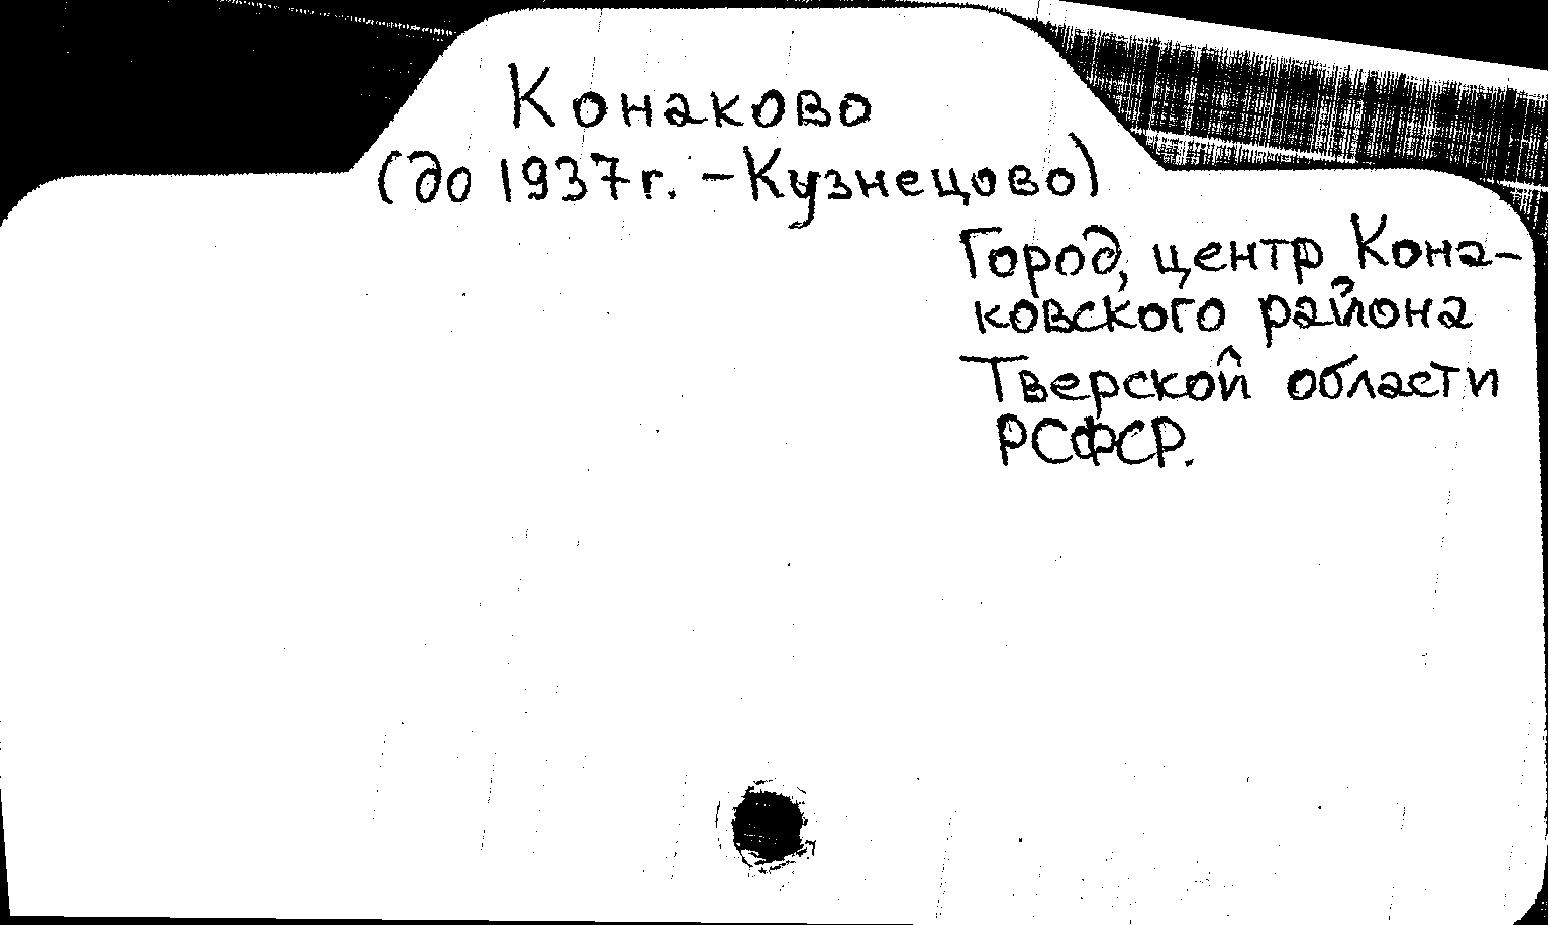 Конаково
(до 1937 г. – Кузнецово)
Город, центр Кона-
ковского района
Тверской области
РСФСР.